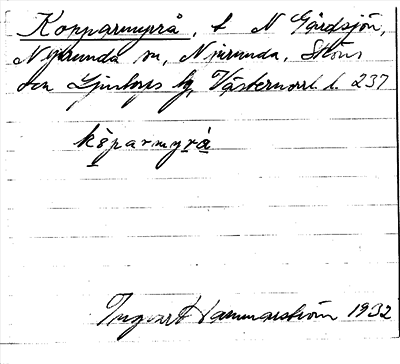 Kopparmyrå, t. N Gårdsjön,
Njurunda sn, Njurunda, Sköns
och Ljustorps tg, Västernorrl. l. 237
kåparmyrå
Ingvart Hammarström 1932